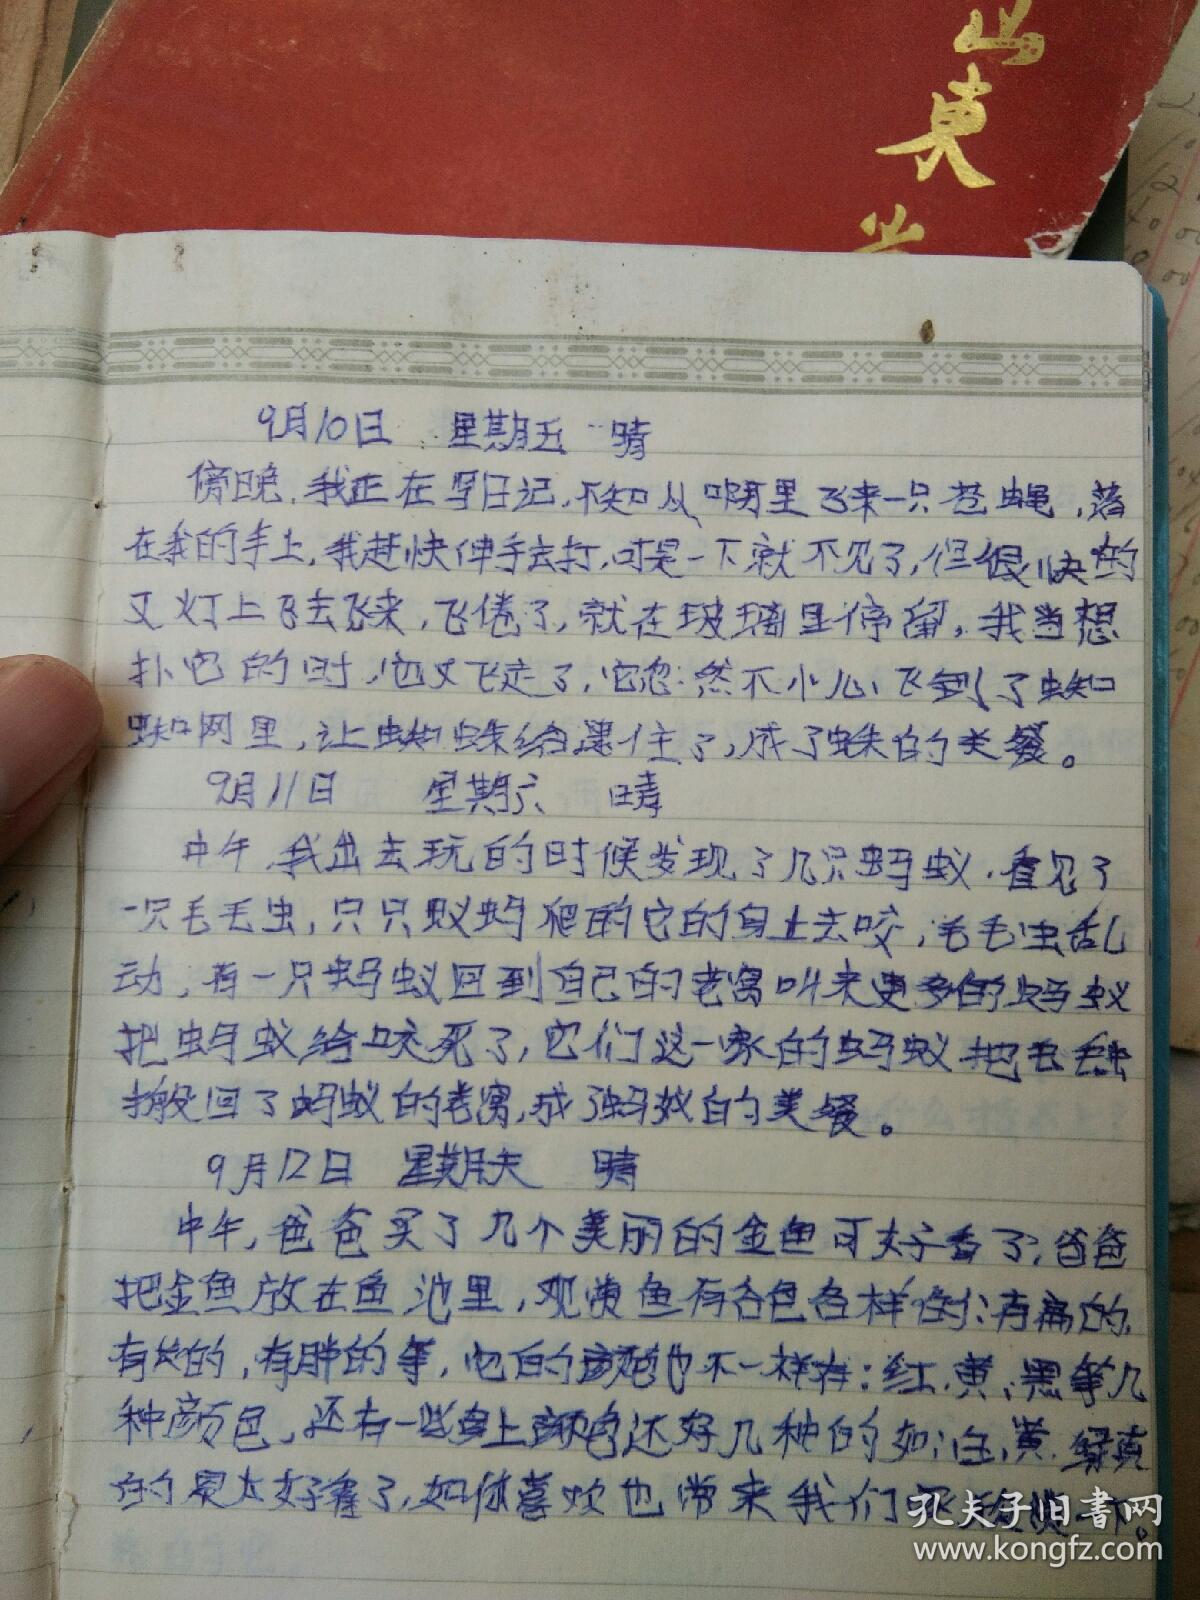 山东
9月10日 星期五 晴
傍晚,我正在写日记,不知从哪里飞来一只苍蝇,落
在我的手上,我赶快伸手去打,可是一下就不见了,但很快的
又灯上飞去飞来,飞倦了,就在玻璃里停留,我当想
扑它的时,它又飞走了,它忽然不小心飞到了蜘
蛛网里,让蜘蛛给逮住了,成了蛛的美餐。
9月11日 星期六 晴
中午,我出去玩的时候发现了几只蚂蚁,看见了
一只毛毛虫,只只蚁蚂爬的它的身上去咬,毛毛虫乱
动,有一只蚂蚁回到自己的老窝叫来更多的蚂蚁
把蚂蚁给咬死了,它们这一家的蚂蚁把毛毛虫
搬回了蚂蚁的老窝,成了蚂蚁的美餐。
9月12日 星期天 晴
中午,爸爸买了几个美丽的金鱼可好看了,爸爸
把金鱼放在鱼池里,观赏鱼有各色各样的:有扁的,
有长的,有胖的等,它的颜色也不一样有:红、黄、黑等几
种颜色,还有一些身上颜色还好几种的如:白,黄,绿真
的是太好看了,如你喜欢也常来我们家观赏一下。
孔夫子旧书网
www.kongfz.com